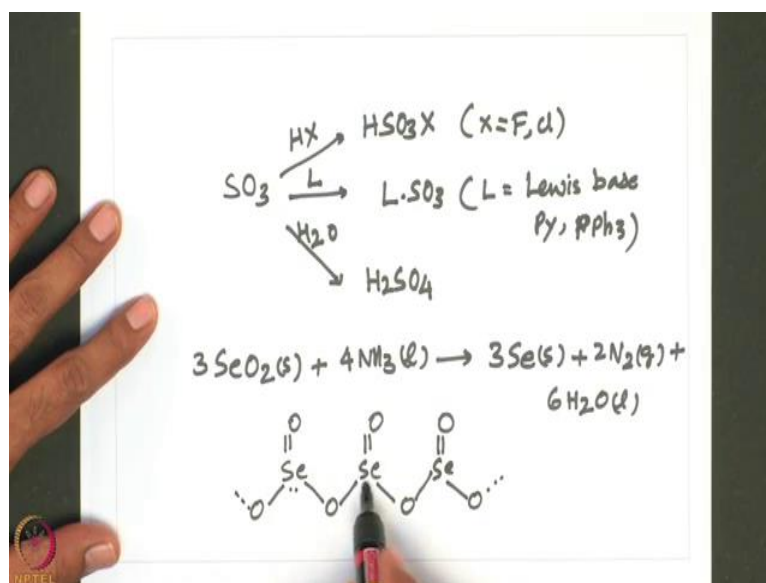 HX
HSO3X (X=F, Cl)
SO3
L
L.SO3 (L = Lewis base
Py, PPh3)
H2O
H2SO4
3 SeO2(s) + 4NH3(l) → 3Se(s) + 2N2(g) +
6H2O(l)
O O O
Se Se Se
O O O O
NPTEL